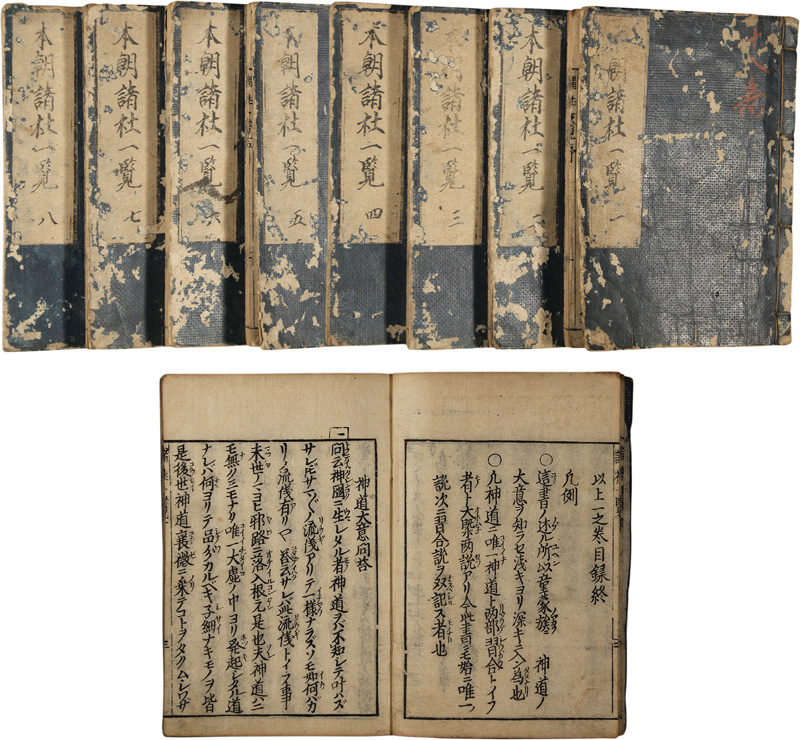 本朝諸社一覧 一
本朝諸社一覧 二
本朝諸社一覧 三
本朝諸社一覧 四
本朝諸社一覧 五
本朝諸社一覧 六
本朝諸社一覧 七
本朝諸社一覧 八
以上一之巻目録終
凡例
○這書ノ述ル所以童蒙 神道ノ
大意ヲ知ラセ浅キヨリ深キニ入ン為也
○凡神道ニ唯一神道ト両部習合トイフ
者ト大概両説アリ今此書ニモ始ニ唯一
説次ニ習合説ヲ双記ス者也
神道大意問答
一 問云神國ニ生レタル者神道ヲバ不知シテ叶ハズ
サレドモサマ〲ノ流儀アリテ一様ナラズソモ如何バカ
リノ流儀有リヤ 答云サレバ此流儀トイフ事
末世ノマヨヒ邪路ニ落入根元是也夫神道ハ二
モ無ク三モナク唯一大虚ノ中ヨリ発起シタル道
ナレバ何ヨリテ品ダカルベキ子細ナキモノヲ皆
是後世神道衰微ニ乗テコトヲタクムシワザ